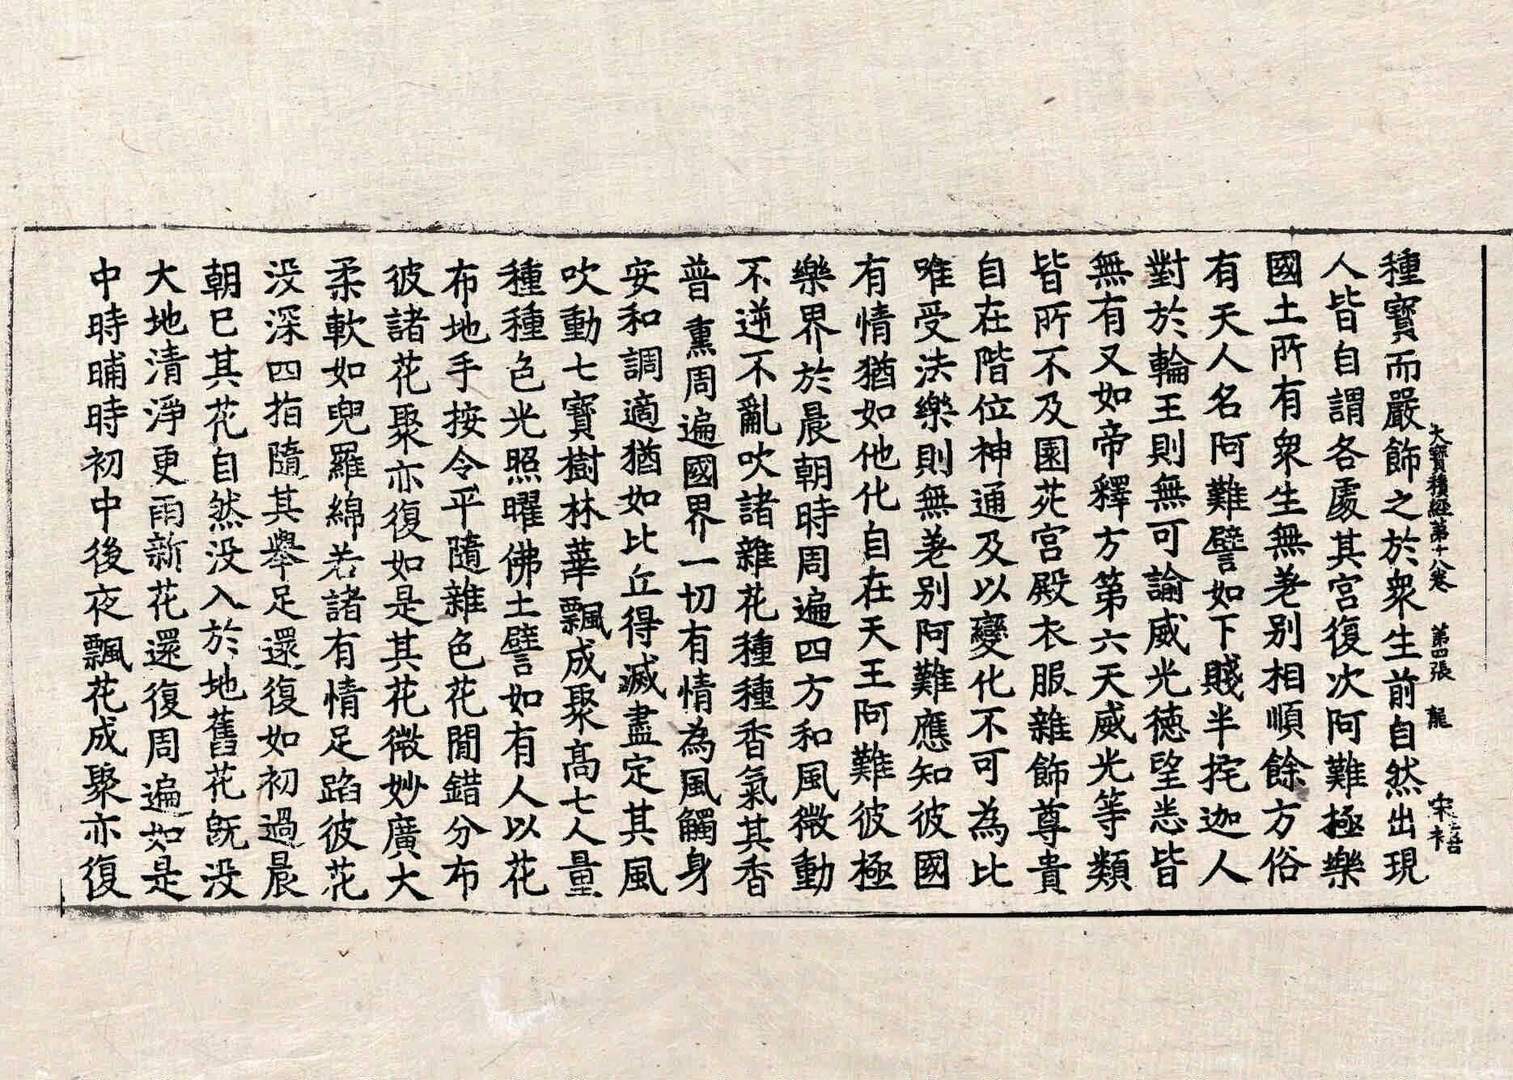 大寶積經第十八卷 第四張 龍
種寶而嚴飾之於衆生前自然出現
人皆自謂各處其宮復次阿難極樂
國土所有衆生無差别相順餘方俗
有天人名阿難譬如下賤半挓迦人
對於輪王則無可論威光德望悉皆
無有又如帝釋方第六天威光等類
皆所不及園苑宮殿衣服雜飾尊貴
自在階位神通及以變化不可為比
唯受法樂則無差别阿難應知彼國
有情猶如他化自在天王阿難彼極
樂界於晨朝時周遍四方和風微動
不逆不亂吹諸雜花種種香氣其香
普熏周遍國界一切有情為風觸身
安和調適猶如比丘得滅盡定其風
吹動七寶樹林華飄成聚高七人量
種種色光照曜佛土譬如有人以花
布地手按令平隨雜色花間錯分布
彼諸花聚亦復如是其花微妙廣大
柔軟如兜羅綿若諸有情足蹈彼花
没深四指隨其舉足還復如初過晨
朝已其花自然没入於地舊花旣没
大地清淨更雨新花還復周遍如是
中時晡時初中後夜飄花成聚亦復